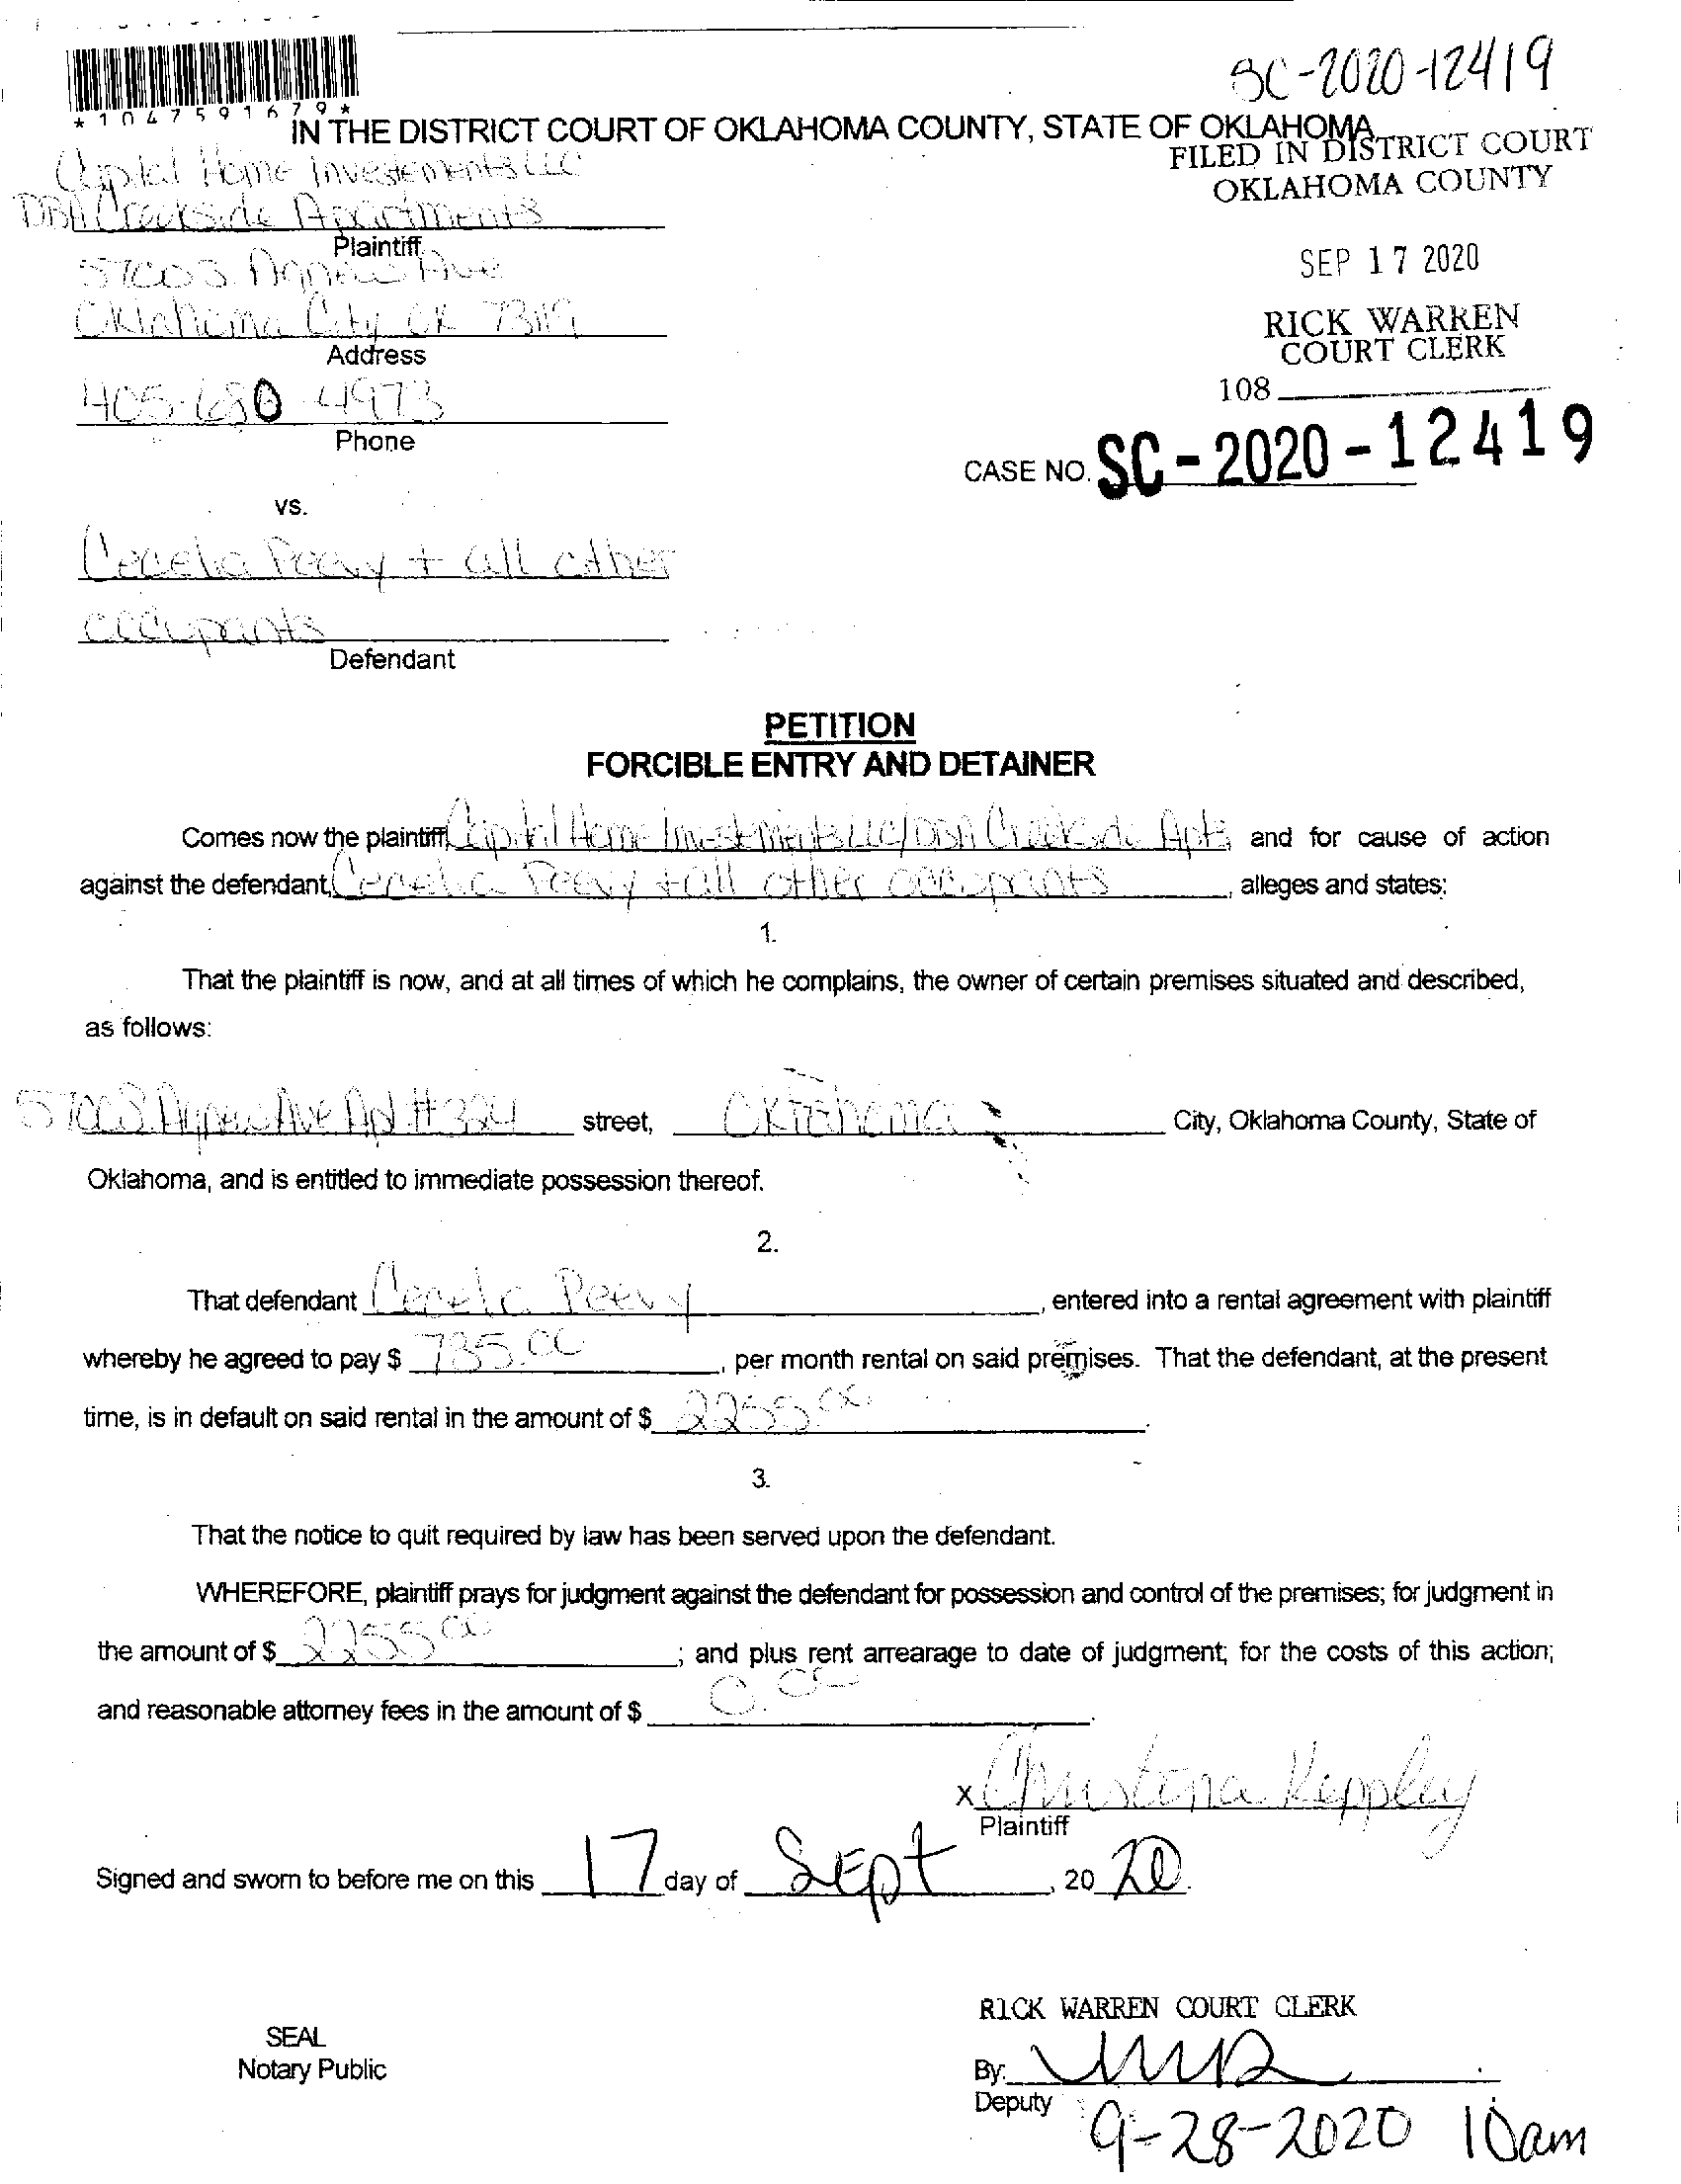 SC-2020-12419
*1047591679*
IN THE DISTRICT COURT OF OKLAHOMA COUNTY, STATE OF OKLAHOMA
FILED IN DISTRICT COURT
OKLAHOMA COUNTY
SEP 17 2020
RICK WARREN
COURT CLERK
108
Capital Home Investements LLC
DBA Creekside Apartments
Plaintiff
5700 S. Agnew Ave
Oklahoma City OK 73119
Address
405-680-4973
Phone
CASE NO. SC-2020-12419
vs.
Peevy + all other
occupants
Defendant
PETITION
FORCIBLE ENTRY AND DETAINER
Comes now the plaintiff, Capital Home Investments LLC/DBA Creekside Apts and for cause of action
against the defendant, Peevy + all other occupants, alleges and states:
1.
That the plaintiff is now, and at all times of which he complains, the owner of certain premises situated and described,
as follows:
5700 S. Agnew Ave Apt #324 street, Oklahoma City, Oklahoma County, State of
Oklahoma, and is entitled to immediate possession thereof.
2.
That defendant Peevy, entered into a rental agreement with plaintiff
whereby he agreed to pay $ 735.00, per month rental on said premises. That the defendant, at the present
time, is in default on said rental in the amount of $ 2255.00.
3.
That the notice to quit required by law has been served upon the defendant.
WHEREFORE, plaintiff prays for judgment against the defendant for possession and control of the premises; for judgment in
the amount of $ 2255.00; and plus rent arrearage to date of judgment; for the costs of this action;
and reasonable attorney fees in the amount of $ 0.00.
x Christina Keppley
Plaintiff
Signed and sworn to before me on this 17 day of Sept, 2020.
RICK WARREN COURT CLERK
SEAL
Notary Public
By:
Deputy
9-28-2020 10am